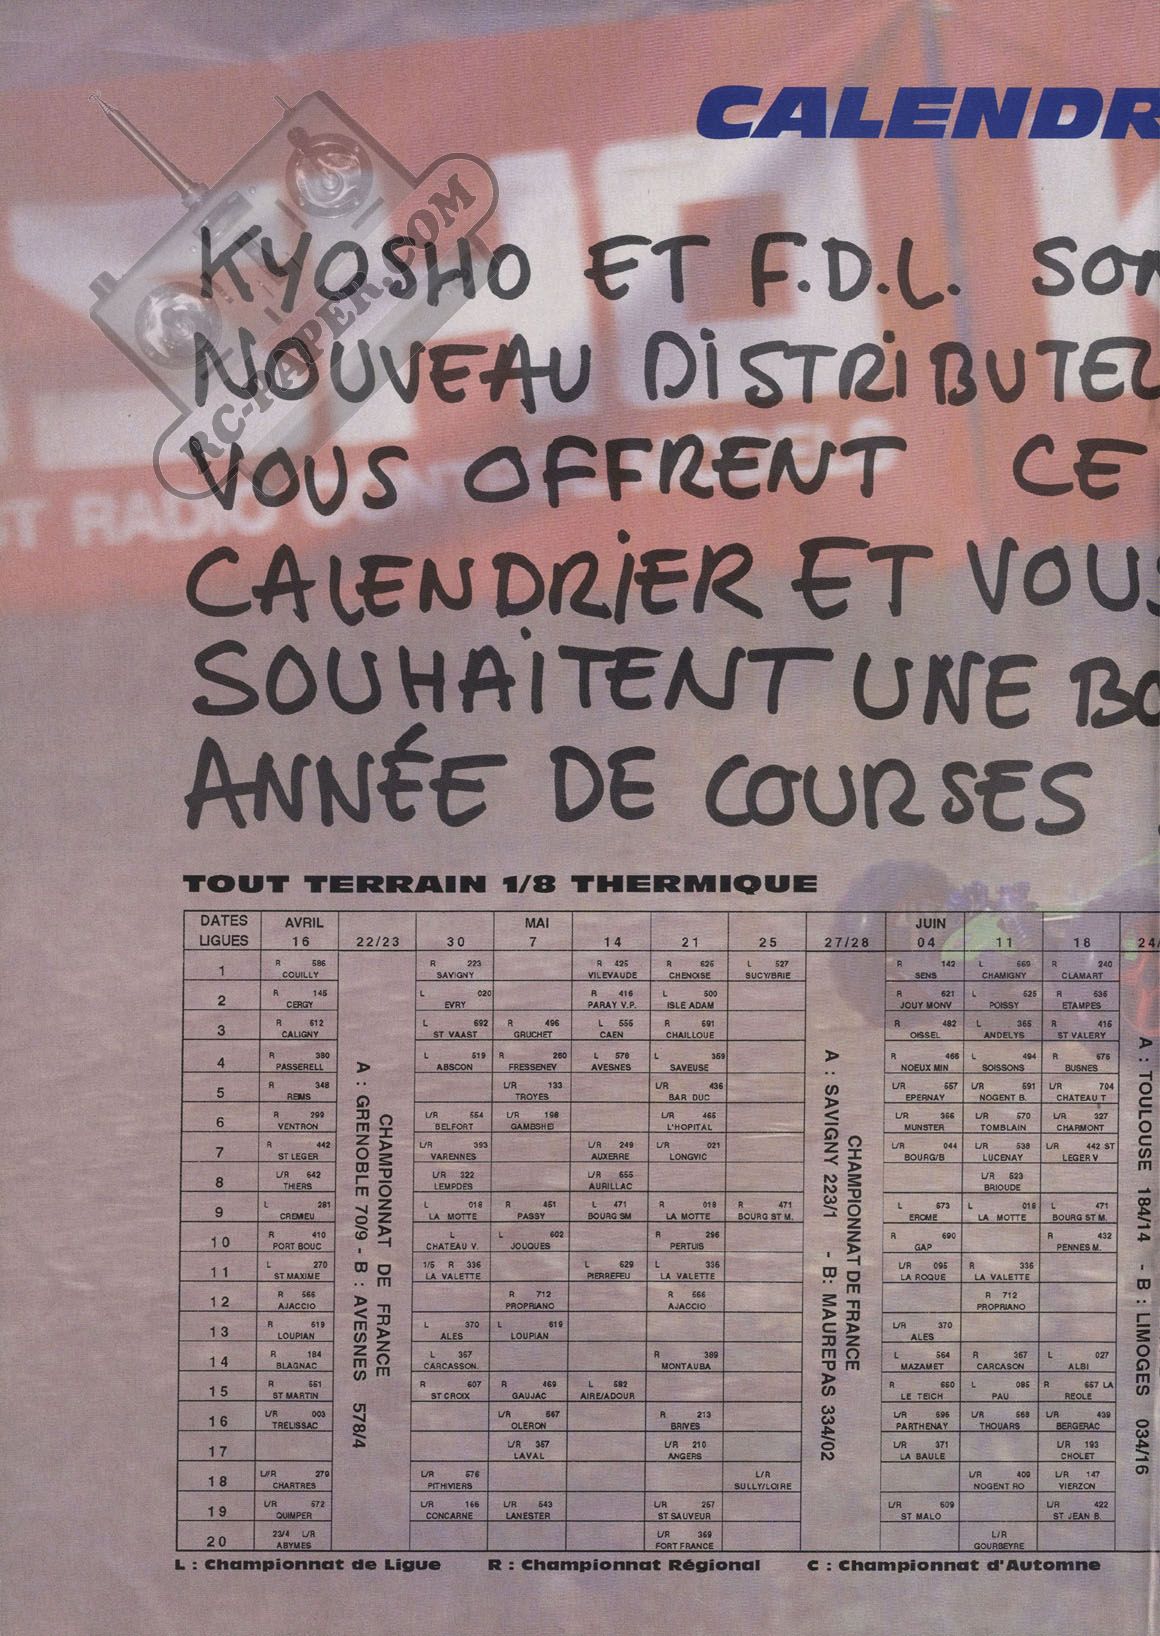 CALENDR
KYOSHO ET F.D.L. SON
NOUVEAU DISTRIBUTEU
VOUS OFFRENT CE
CALENDRIER ET VOUS
SOUHAITENT UNE BO
ANNÉE DE COURSES
RC-PAPER.COM
ST RADIO CONT
ELS
TOUT TERRAIN 1/8 THERMIQUE
DATES AVRIL MAI JUIN
LIGUES 16 22/23 30 7 14 21 25 27/28 04 11 18 24/
1 R 586 COUILLY R 223 SAVIGNY R 425 VILEVAUDE R 625 CHENOISE L 527 SUCY/BRIE R 142 SENS L 669 CHAMIGNY R 240 CLAMART
2 R 145 CERGY L 020 EVRY R 416 PARAY V.P. L 500 ISLE ADAM R 621 JOUY MONV L 525 POISSY R 535 ETAMPES
3 R 612 CALIGNY L 692 ST VAAST R 496 GRUCHET L 555 CAEN R 691 CHAILLOUE R 482 OISSEL L 365 ANDELYS R 415 ST VALERY
4 R 380 PASSERELL L 519 ABSCON R 260 FRESSENEV L 578 AVESNES L 359 SAVEUSE R 466 NOEUX MIN L 494 SOISSONS R 675 BUSNES
5 R 348 REIMS L/R 133 TROYES L/R 436 BAR DUC L/R 557 EPERNAY L/R 591 NOGENT B. L/R 704 CHATEAU T
6 R 299 VENTRON L/R 554 BELFORT L/R 198 GAMBSHEI L/R 465 L'HOPITAL L/R 366 MUNSTER L/R 570 TOMBLAIN L/R 327 CHARMONT
7 R 442 ST LEGER L/R 393 VARENNES L/R 249 AUXERRE L/R 021 LONGVIC L/R 044 BOURG/B L/R 538 LUCENAY L/R 442 ST LEGER V
8 L/R 642 THIERS L/R 322 LEMPDES L/R 655 AURILLAC L/R 523 BRIOUDE
9 L 281 CREMIEU L 018 LA MOTTE R 451 PASSY L 471 BOURG SM R 018 LA MOTTE R 471 BOURG ST M. L 573 EROME L 018 LA MOTTE L 471 BOURG ST M.
10 R 410 PORT BOUC L CHATEAU V. L 602 JOUQUES R 296 PERTUIS R 690 GAP R 432 PENNES M.
11 L 270 ST MAXIME 1/5 R 336 LA VALETTE L 629 PIERREFEU L 336 LA VALETTE L/R 095 LA ROQUE R 336 LA VALETTE
12 R 566 AJACCIO R 712 PROPRIANO R 566 AJACCIO R 712 PROPRIANO
13 R 619 LOUPIAN L 370 ALES L 619 LOUPIAN L/R 370 ALES
14 R 184 BLAGNAC L 357 CARCASSON. R 389 MONTAUBA L 564 MAZAMET R 367 CARCASON L 027 ALBI
15 R 551 ST MARTIN R 607 ST CROIX R 469 GAUJAC L 582 AIRE/ADOUR R 650 LE TEICH L 085 PAU R 657 LA REOLE
16 L/R 003 TRELISSAC L/R 567 OLERON R 213 BRIVES L/R 596 PARTHENAY L/R 568 THOUARS L/R 439 BERGERAC
17 L/R 357 LAVAL L/R 210 ANGERS L/R 371 LA BAULE L/R 193 CHOLET
18 L/R 279 CHARTRES L/R 576 PITHIVIERS L/R SULLY/LOIRE L/R 409 NOGENT RO L/R 147 VIERZON
19 L/R 572 QUIMPER L/R 166 CONCARNE L/R 543 LANESTER L/R 257 ST SAUVEUR L/R 509 ST MALO L/R 422 ST JEAN B.
20 23/4 L/R ABYMES L/R 369 FORT FRANCE L/R GOURBEYRE
CHAMPIONNAT DE FRANCE
A : GRENOBLE 70/9 - B : AVESNES 578/4
CHAMPIONNAT DE FRANCE
A : SAVIGNY 223/1 - B: MAUREPAS 334/02
A : TOULOUSE 184/14 - B : LIMOGES 034/16
L : Championnat de Ligue R : Championnat Régional C : Championnat d'Automne